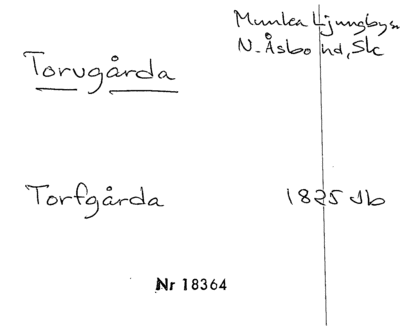 Munka Ljungby sn
N. Åsbo hd, Sk
Torugårda
Torfgårda 1825 Jb
Nr 18364